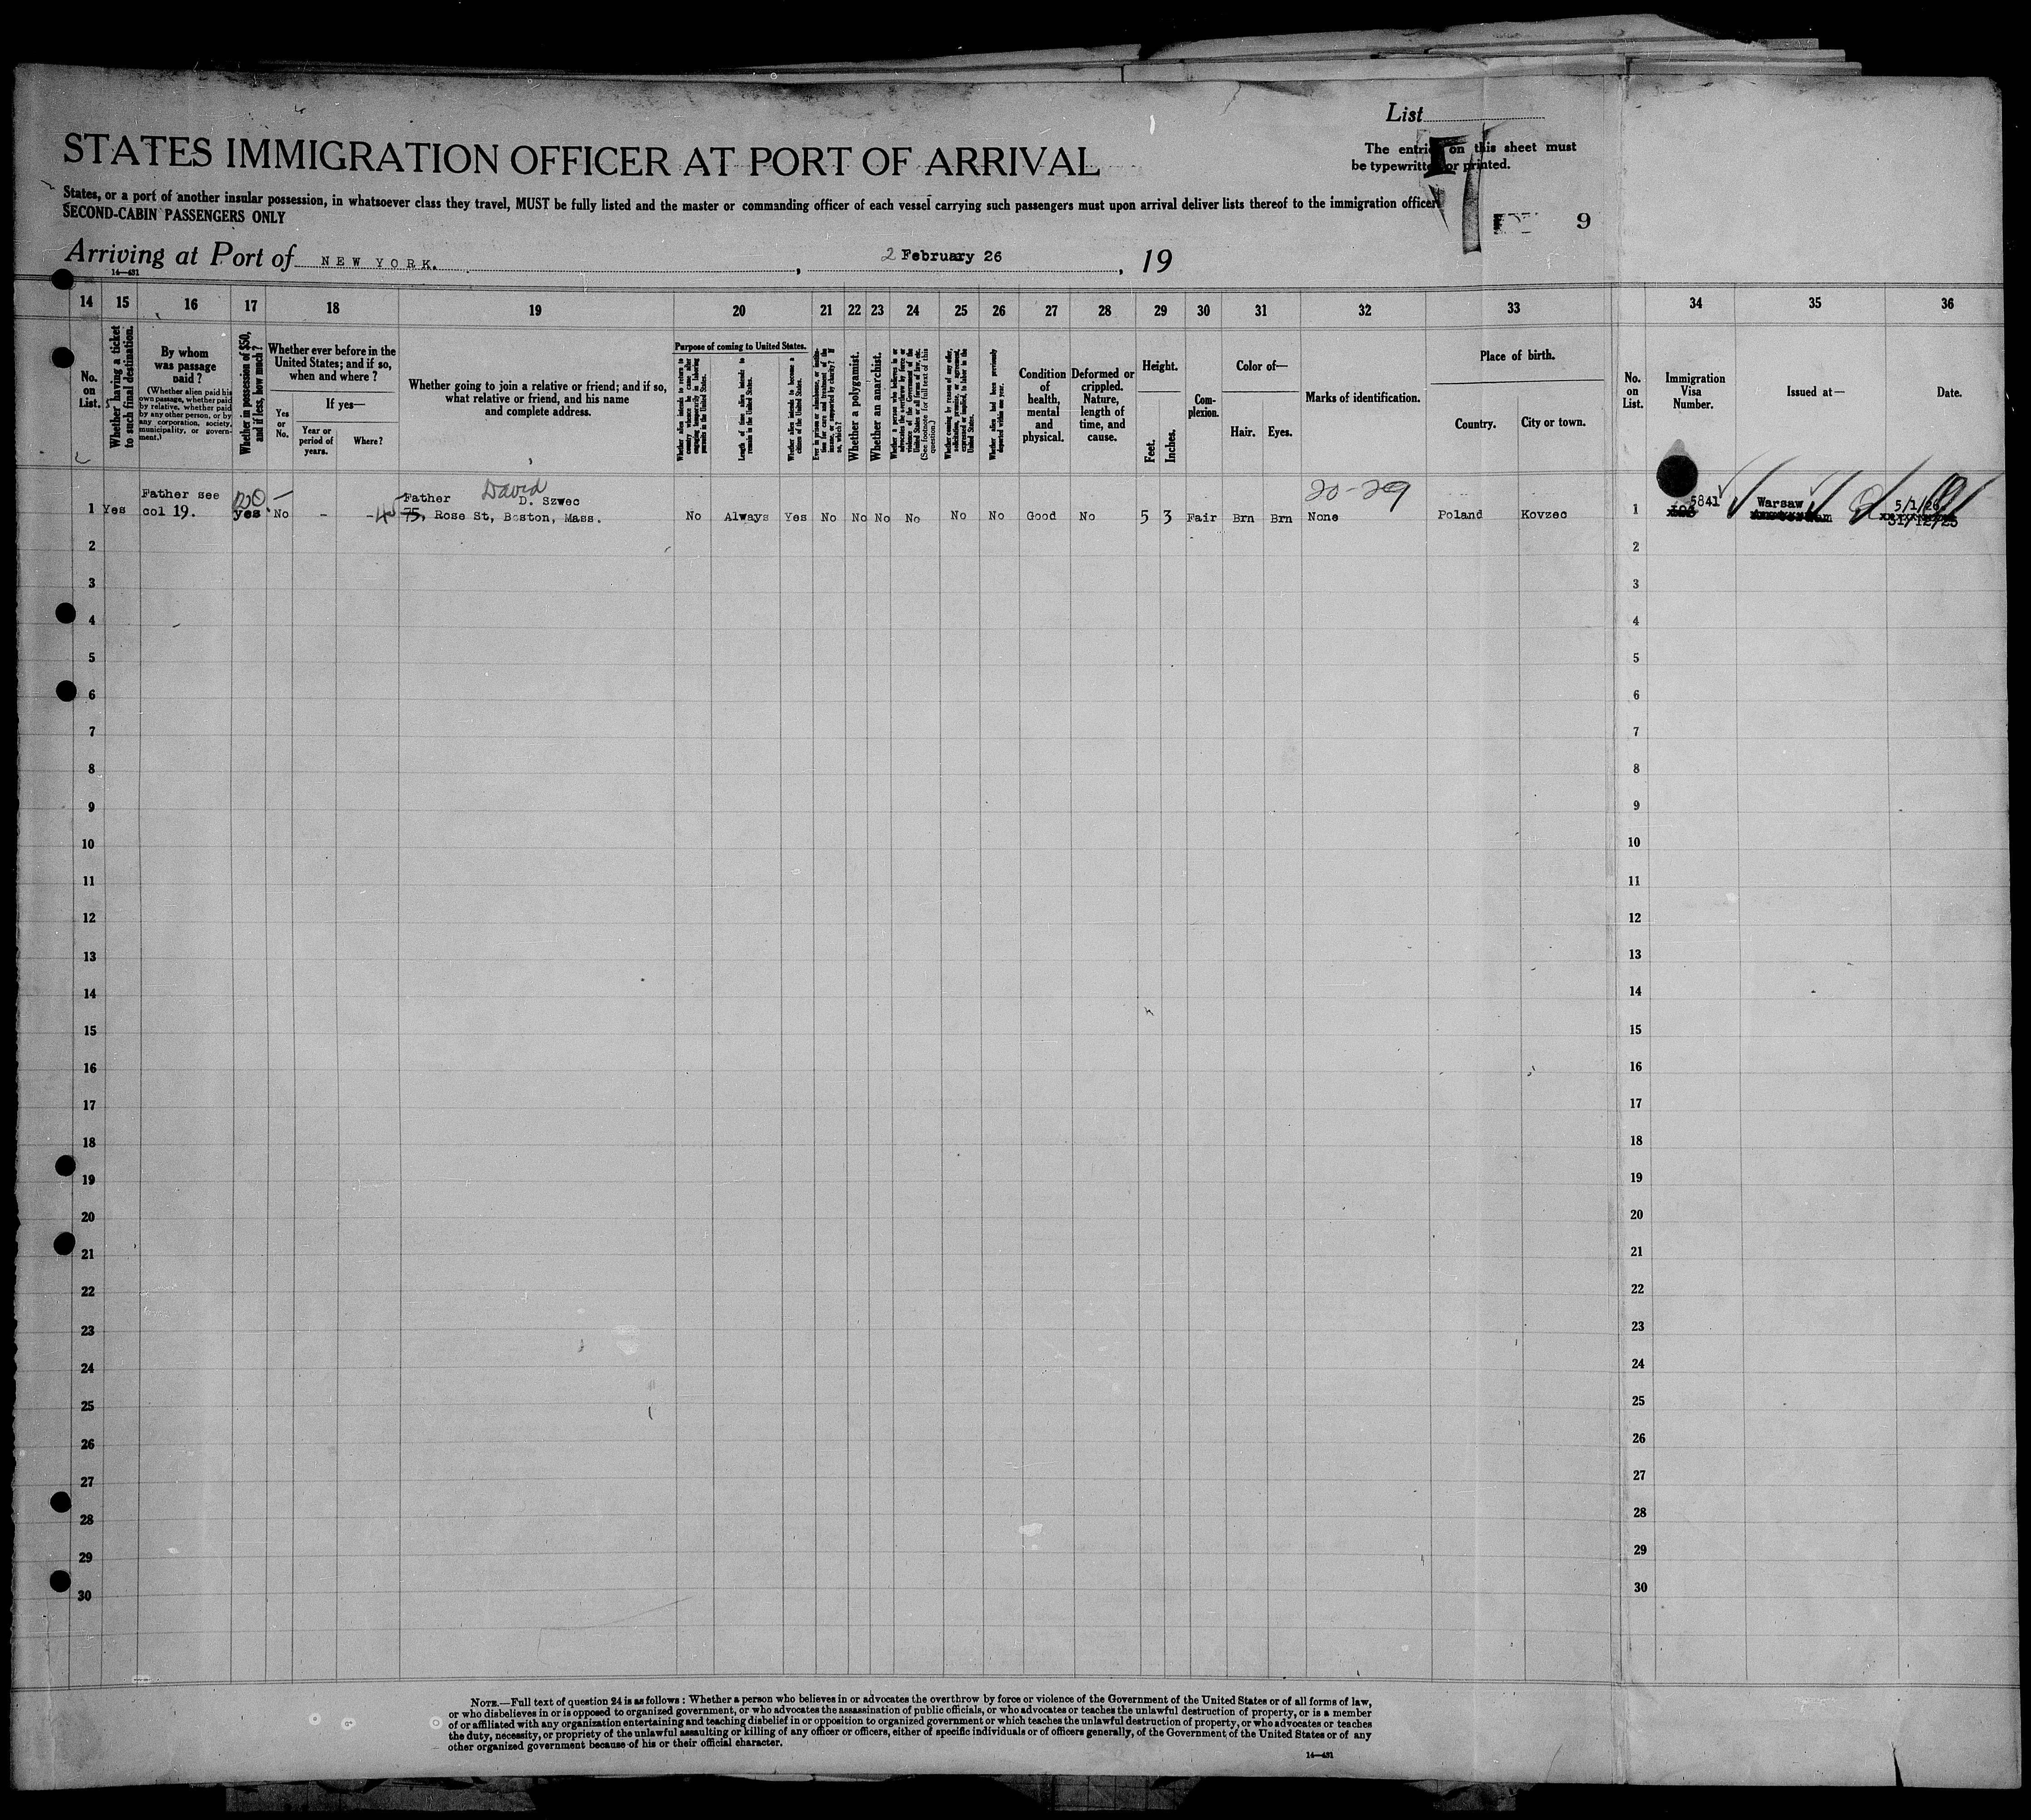 List
STATES IMMIGRATION OFFICER AT PORT OF ARRIVAL
The entries on this sheet must
be typewritten or printed.
States, or a port of another insular possession, in whatsoever class they travel, MUST be fully listed and the master or commanding officer of each vessel carrying such passengers must upon arrival deliver lists thereof to the immigration officer
SECOND-CABIN PASSENGERS ONLY
9
Arriving at Port of NEW YORK. , 2 February 26 , 19
14—431
14 15 16 17 18 19 20 21 22 23 24 25 26 27 28 29 30 31 32 33 34 35 36
No. on List.
Whether having a ticket to such final destination.
By whom was passage paid?
(Whether alien paid his own passage, whether paid by relative, whether paid by any other person, or by any corporation, society, municipality, or government.)
Whether in possession of $50, and if less, how much?
Whether ever before in the United States; and if so, when and where?
Yes or No.
If yes—
Year or period of years.
Where?
Whether going to join a relative or friend; and if so, what relative or friend, and his name and complete address.
Purpose of coming to United States.
Whether alien intends to return to country whence he came after engaging temporarily in laboring pursuits in the United States.
Length of time alien intends to remain in the United States.
Whether alien intends to become a citizen of the United States.
Whether a polygamist.
Whether an anarchist.
(See footnote for full text of this question.)
Whether alien had been previously deported within one year.
Condition of health, mental and physical.
Deformed or crippled. Nature, length of time, and cause.
Height.
Feet.
Inches.
Complexion.
Color of—
Hair.
Eyes.
Marks of identification.
Place of birth.
Country.
City or town.
No. on List.
Immigration Visa Number.
Issued at—
Date.
Father see David 20-29 5841 Warsaw 5/1/26
Father D. Szwec
1 Yes col 19. yes No - - 45 75, Rose St, Boston, Mass. No Always Yes No No No No No No Good No 5 3 Fair Brn Brn None Poland Kovzec 1 31/12/25
2 2
3 3
4 4
5 5
6 6
7 7
8 8
9 9
10 10
11 11
12 12
13 13
14 14
15 15
16 16
17 17
18 18
19 19
20 20
21 21
22 22
23 23
24 24
25 25
26 26
27 27
28 28
29 29
30 30
NOTE.—Full text of question 24 is as follows: Whether a person who believes in or advocates the overthrow by force or violence of the Government of the United States or of all forms of law,
or who disbelieves in or is opposed to organized government, or who advocates the assassination of public officials, or who advocates or teaches the unlawful destruction of property, or is a member
of or affiliated with any organization entertaining and teaching disbelief in or opposition to organized government or which teaches the unlawful destruction of property, or who advocates or teaches
the duty, necessity, or propriety of the unlawful assaulting or killing of any officer or officers, either of specific individuals or of officers generally, of the Government of the United States or of any
other organized government because of his or their official character.
14—431